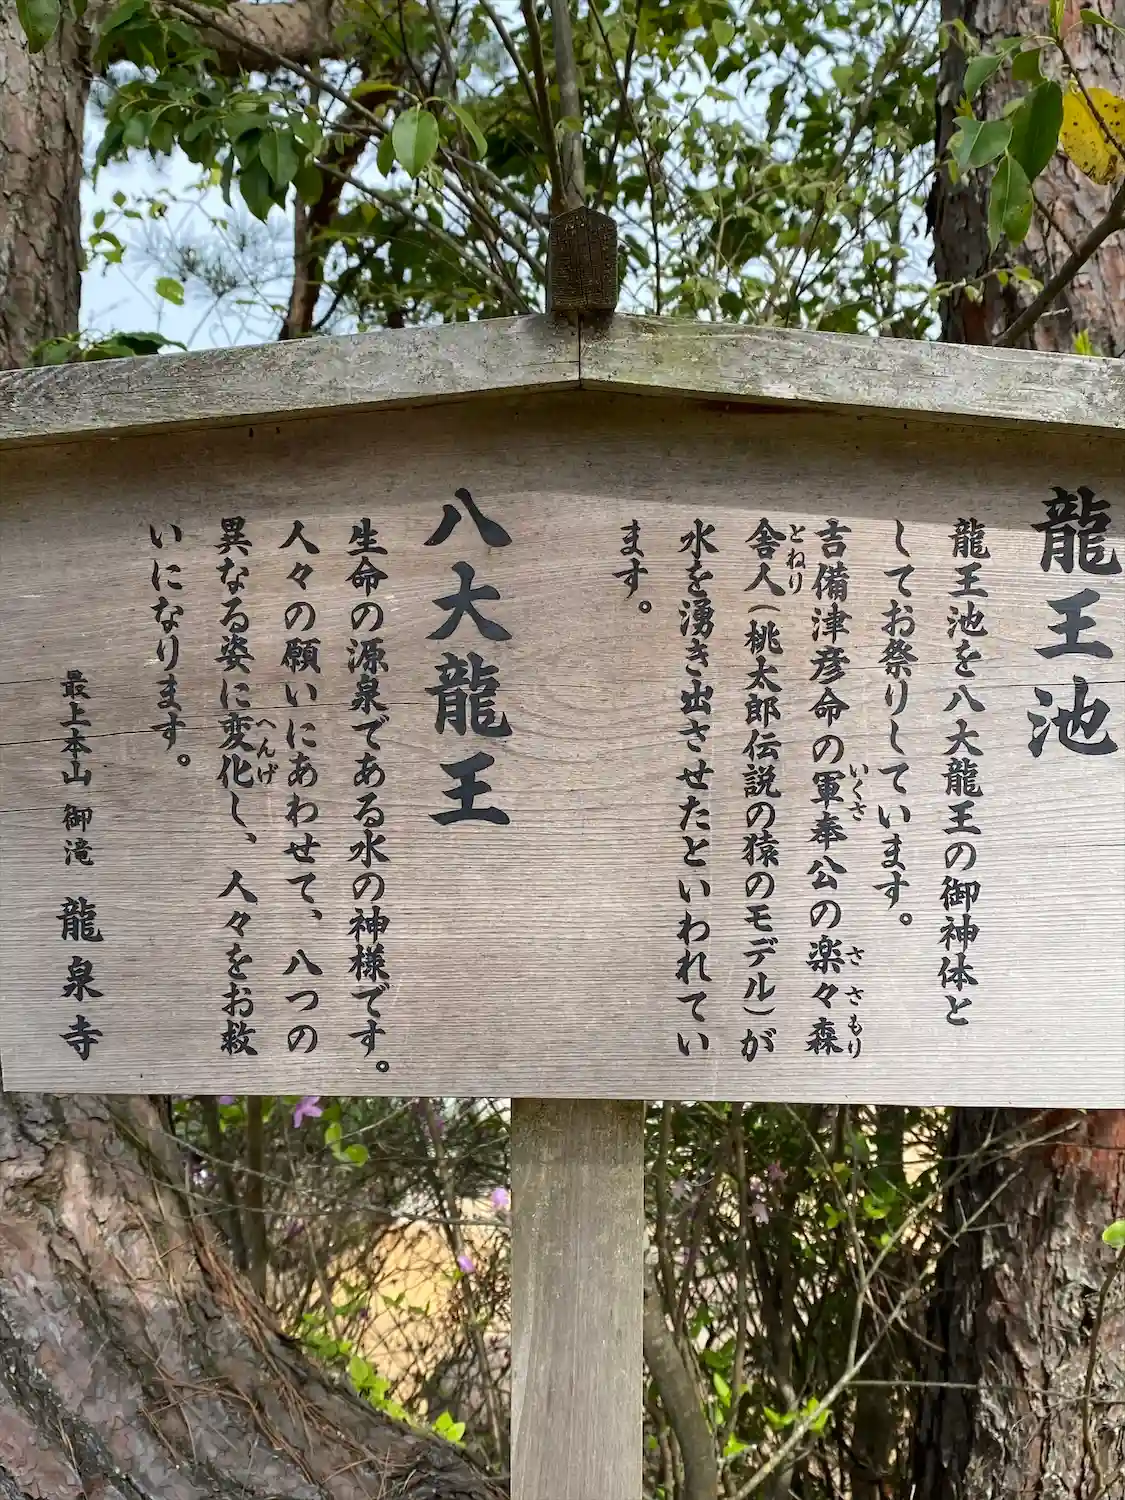 龍王池
龍王池を八大龍王の御神体と
してお祭りしています。
吉備津彦命の軍奉公の楽々森
いくさ
ささもり
舎人（桃太郎伝説の猿のモデル）が
とねり
水を湧き出させたといわれてい
ます。
八大龍王
生命の源泉である水の神様です。
人々の願いにあわせて、八つの
異なる姿に変化し、人々をお救
へんげ
いになります。
最上本山 御滝 龍泉寺